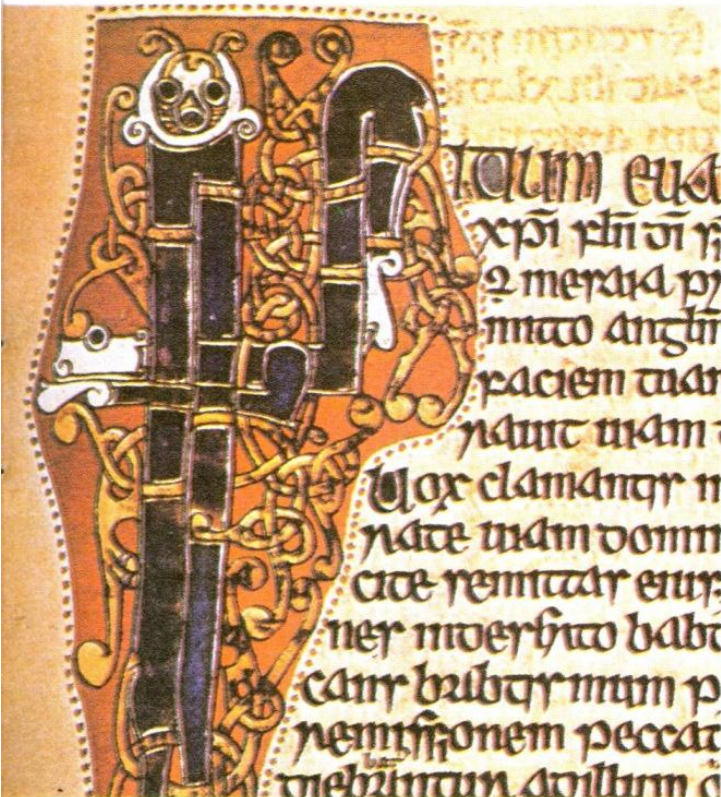 INITIUM EUA
xp̄i filii dī s
inesaia pr
mitto anglm
faciem tuam
rauit uiam t
Uox clamantis in
rate uiam domin
cite semittas eius
nes indeserto babt
cans babtismum p
remissionem peccat
diebantur adillum o